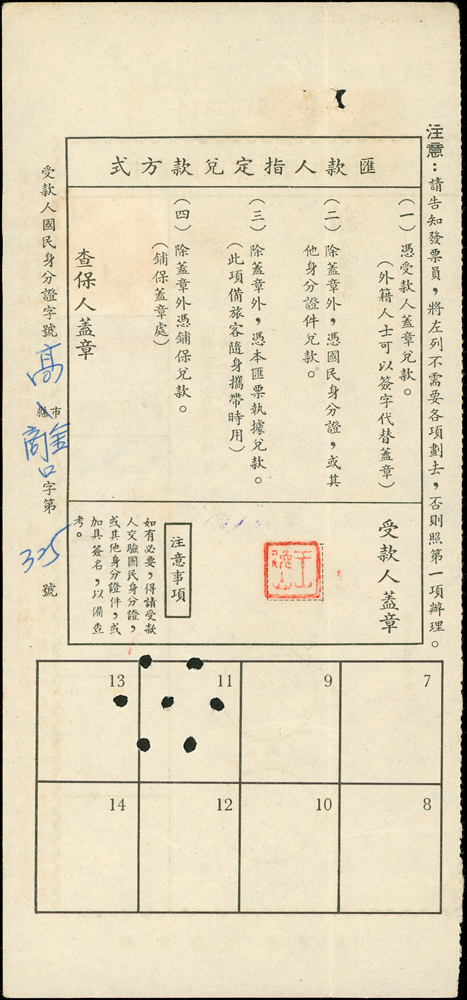 注意：請告知發票員，將左列不需要各項劃去，否則照第一項辦理。
匯款人指定兌款方式
（一）憑受款人蓋章兌款。
（外籍人士可以簽字代替蓋章）
（二）除蓋章外，憑國民身分證，或其
他身分證件兌款。
（三）除蓋章外，憑本匯票執據兌款。
（此項備旅客隨身攜帶時用）
（四）除蓋章外憑鋪保兌款。
（鋪保蓋章處）
查保人蓋章
受款人蓋章
注意事項
如有必要，得請受款
人交驗國民身分證，
或其他身分證件，或
加具簽名，以備查
考。
受款人國民身分證字號 高 縣市 字第 325 號
7
8
9
10
11
12
13
14